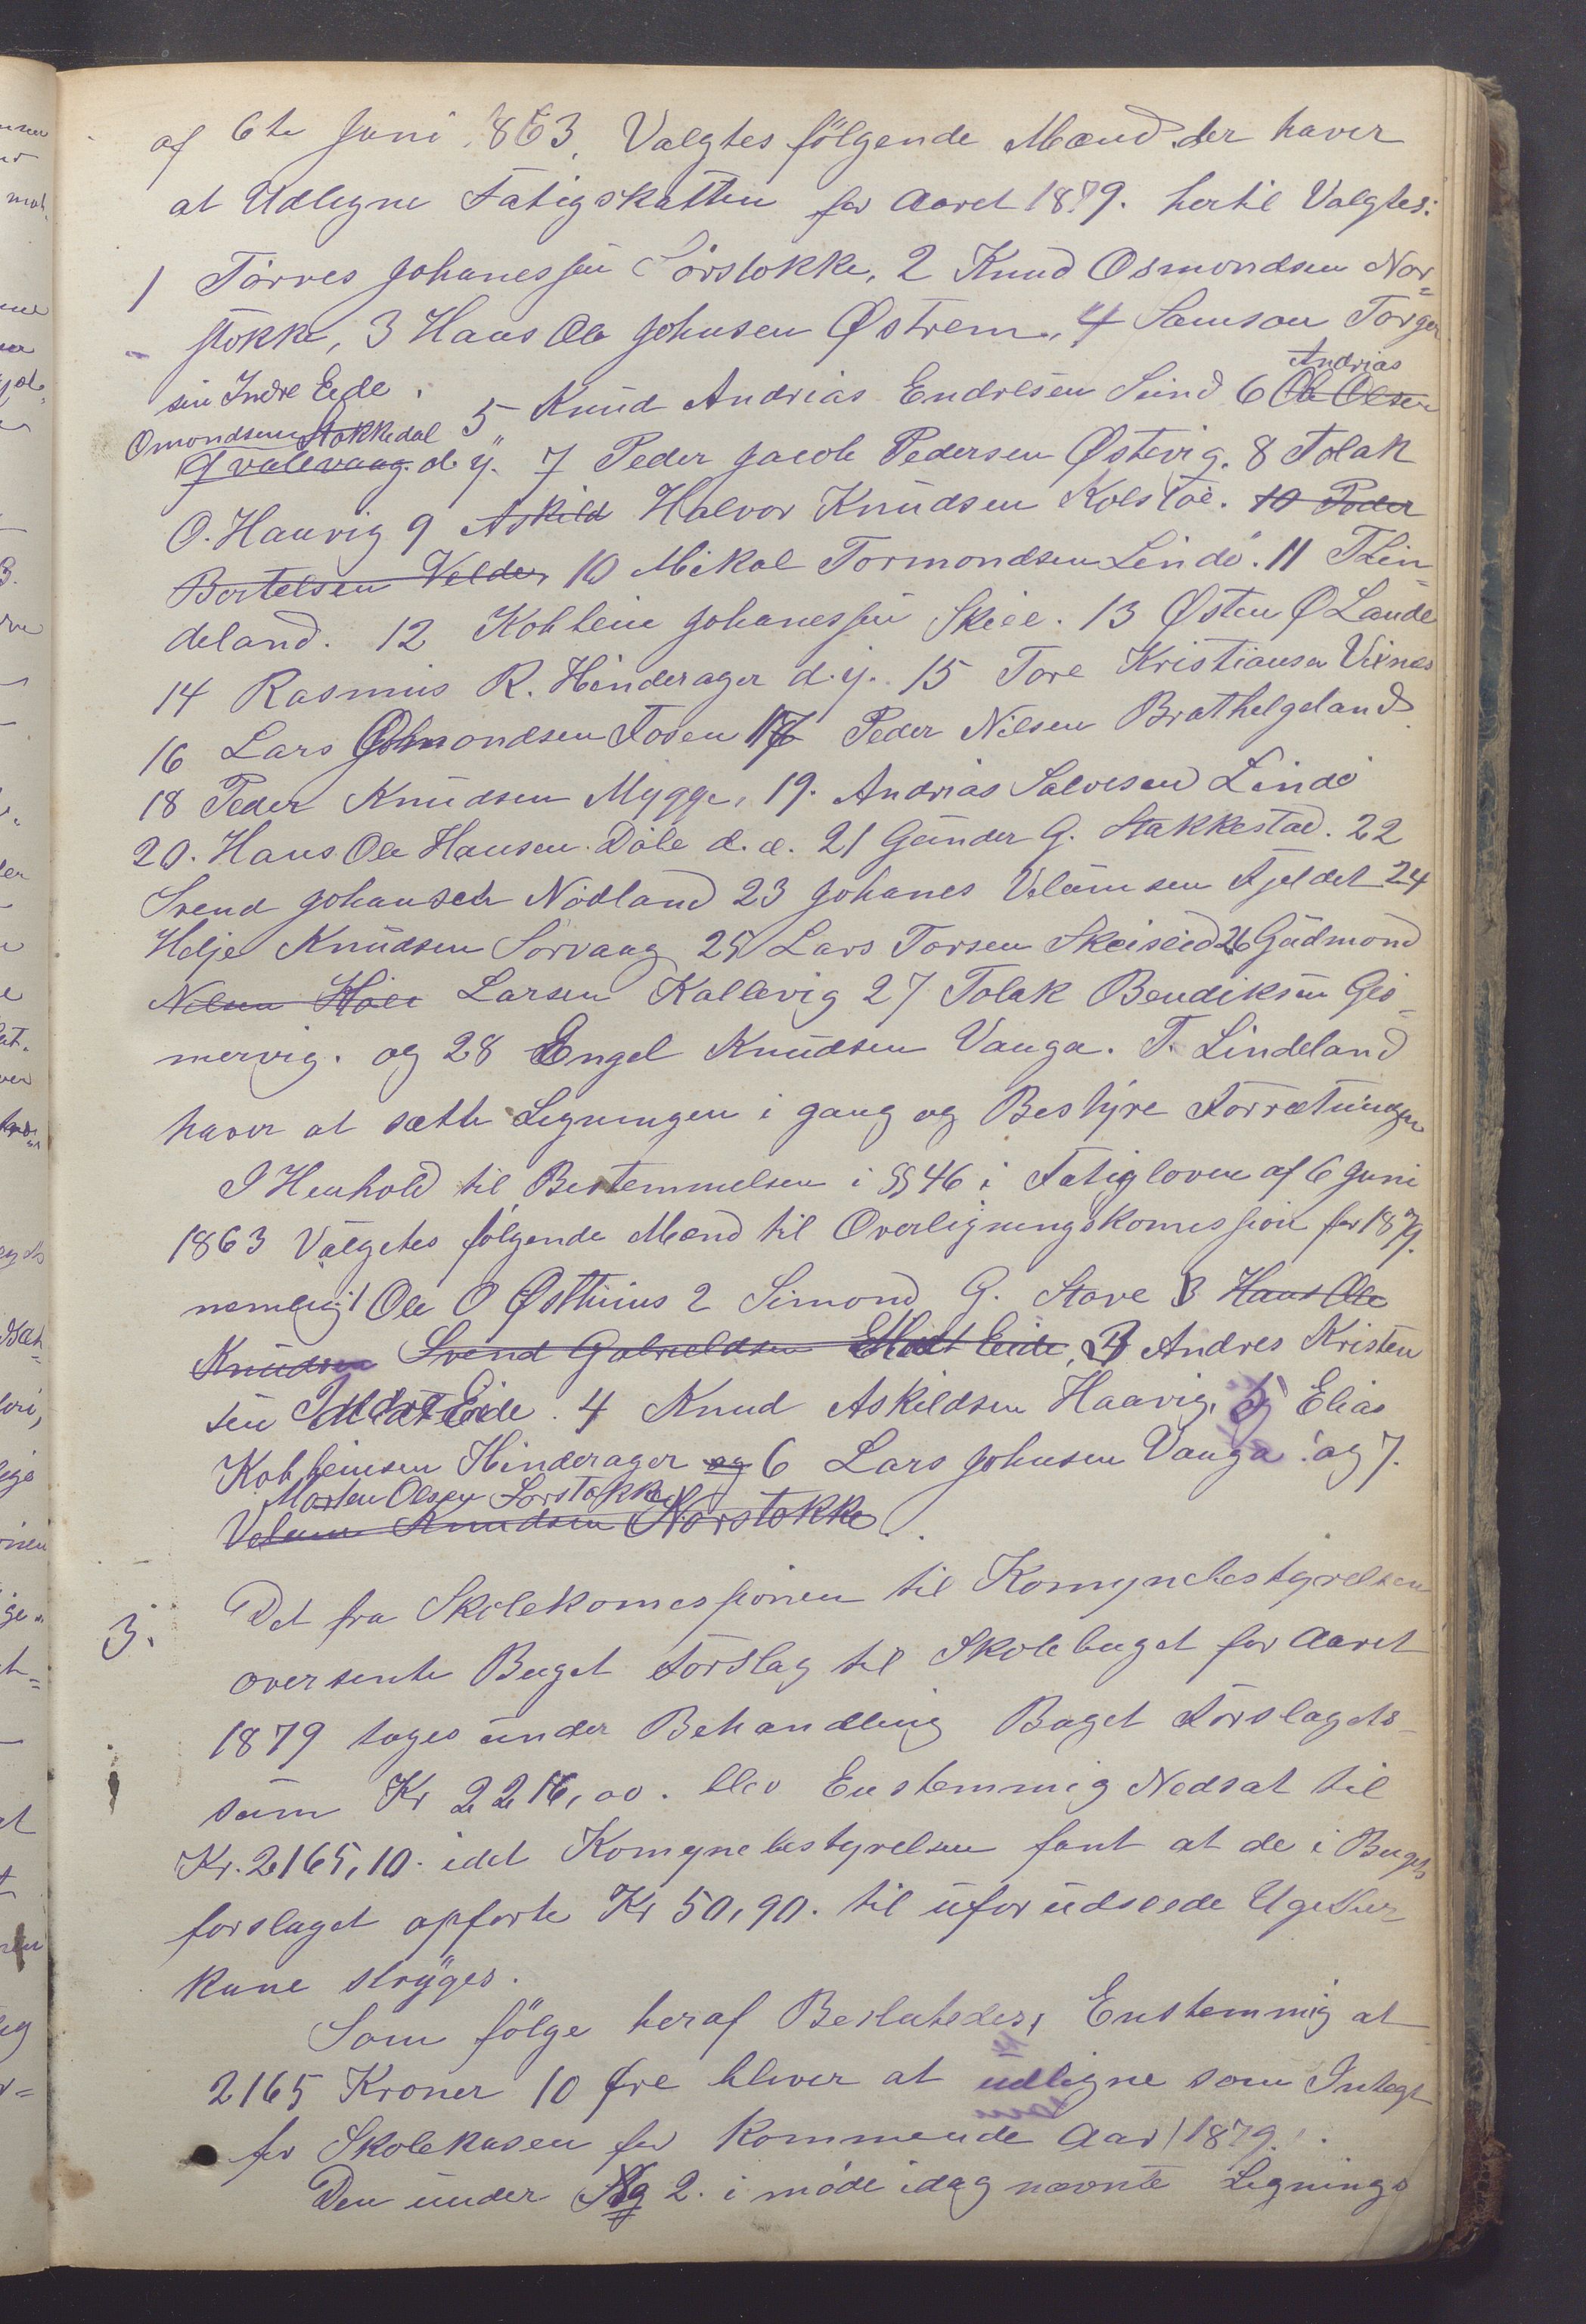 af 6te Juni 1863, Valgtes følgende Mænd der haver
at Udlegne Fatigskatten for Aaret 1879. hertil Valgtes:
1 Torres Johanessen Sørstokke, 2 Knud Osmondsen Nor-
stokke, 3 Hans Ole Johnsen Østrem, 4 Samson Torger
sen Indre Eide. 5 Knud Andrias Endresen Sund 6 Andrias Ole Olsen
Omondsen Stokkedal
Qvalevaag d. y. 7 Peder Jacob Pedersen Østevig. 8 Tolak
O. Hauvig 9 Askild Halvor Knudsen Kolstøe. 10 Peder
Bertelsen Velde, 10 Mikal Tormondsen Lindø. 11 T Lin-
deland. 12 Kolbein Johanessen Skeie. 13 Østen Ø Lande
14 Rasmus R. Hinderager d. y. 15 Tore Kristiansen Vixnes
16 Lars Osmondsen Fosen 17 Peder Nilsen Brathelgeland
18 Peder Knudsen Mygge, 19. Andrias Salvesen Lindø
20. Hans Ole Hansen Døle d. æ. 21 Gunder G. Stakkestad. 22
Svend Johansen Nødland 23 Johanes Velomsen Fjeldet 24
Helje Knudsen Sørvaag 25 Lars Torsen Skeiseid 26 Gudmond
Nilsen Larsen Kallevig 27 Tolak Bendiksen Gis-
mervig. og 28 Engel Knudsen Vanga. T. Lindeland
haver at sætte Ligningen i gang og Bestyre Forretningen
I Henhold til Bestemmelsen i §§ 46 i Fatigloven af 6 Juni
1863 Valgtes følgende Mænd til Overligningskomission for 1879.
nemlig 1 Ole O Østhuus 2 Simond G. Stave 3 Hans Ole
Knudsen Svend Gabrieldsen Midt Eide, 3 Andres Kristen
sen Indre Eide. 4 Knud Askildsen Haavig, 5 Elias
Kolbeinsen Hinderager og 6 Lars Johnsen Vanga. og 7.
Morten Olsen Sørstokke
Velum Knudsen Norstokke.
3. Det fra Skolekomissionen til Komynebestyrelsen
oversente Buget Forslag til Skolebuget for Aaret
1879 toges under Behandling Buget Forslagets
sum Kr 2216,00. blev Enstemmig Nedsat til
Kr. 2165,10. idet Komynebestyrelsen fant at de i Buget
forslaget opførte Kr 50,90. til uforudseede Ugifter
kune stryges.
Som følge heraf Beslutedes, Enstemmig at
2165 Kroner 10 Øre bliver at udligne som Integt
for Skolekasen for Kommende Aar 1879.
Den under Sag 2. i møde idag nævnte Lignings